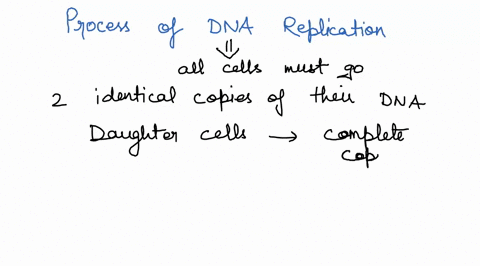 Process of DNA Replication
⇓
all cells must go
2 identical copies of their DNA
Daughter cells → complete
cop